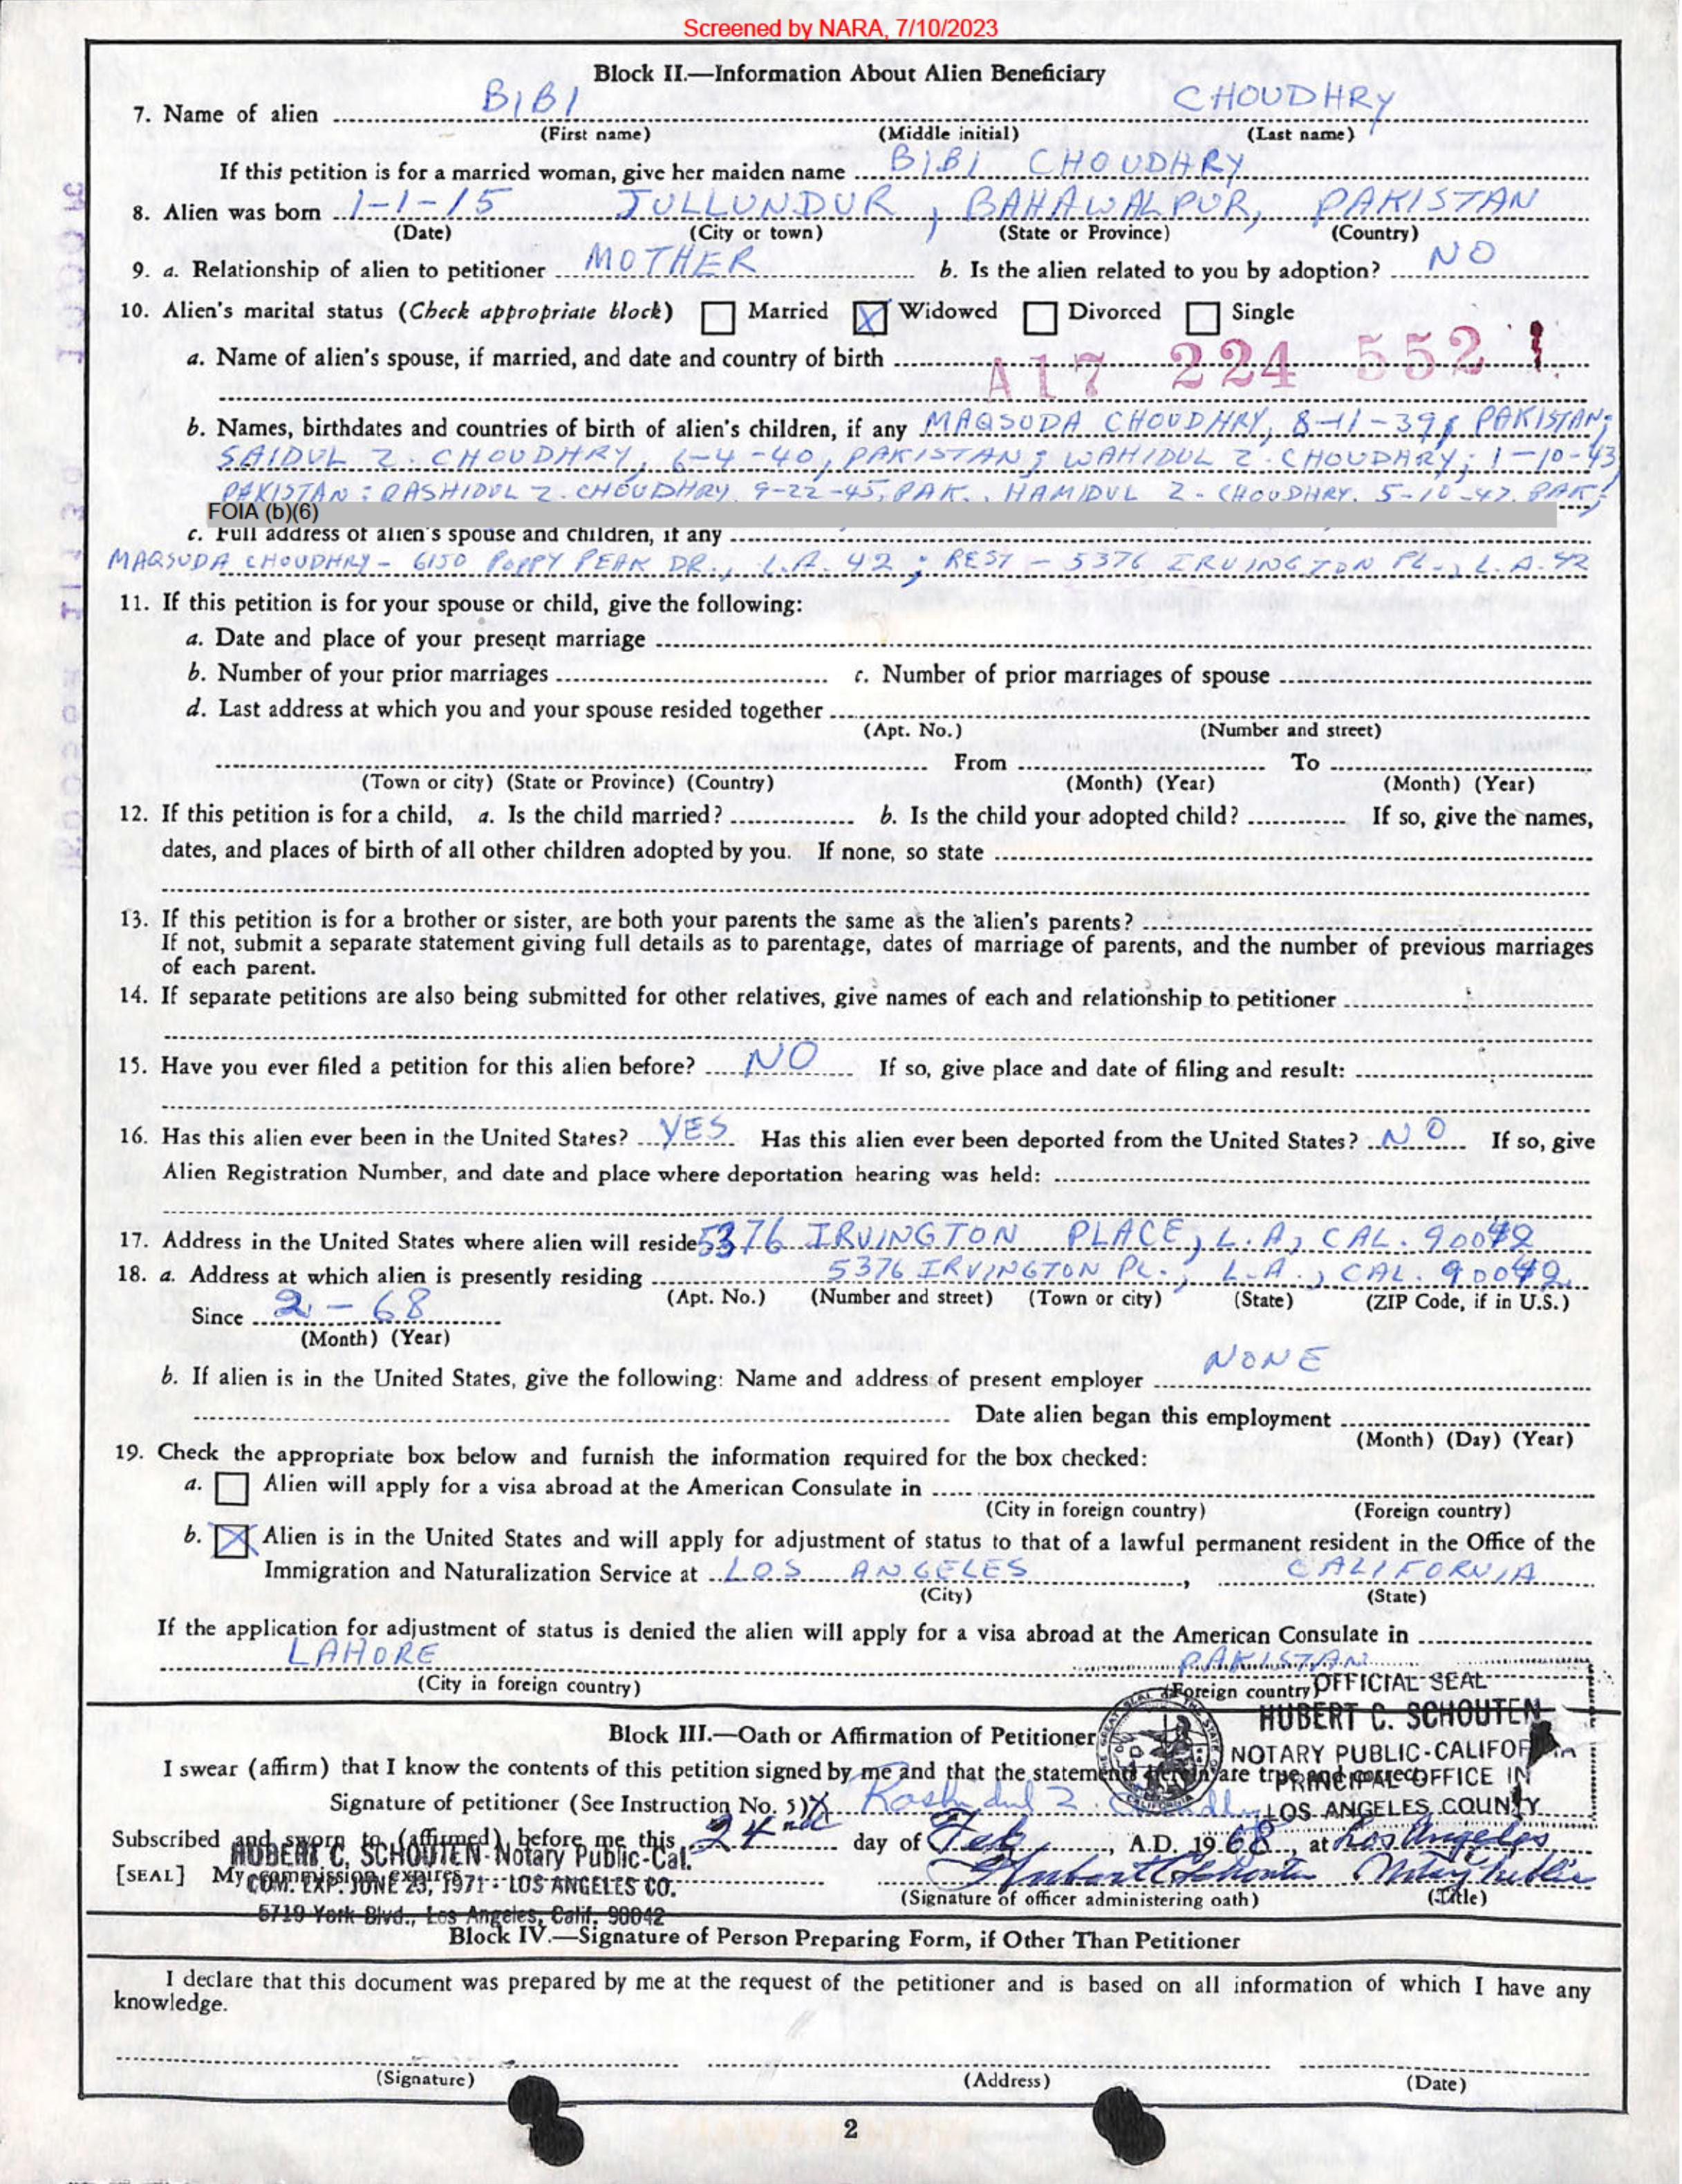 Screened by NARA, 7/10/2023
Block II.—Information About Alien Beneficiary
7. Name of alien BIBI CHOUDHRY
(First name) (Middle initial) (Last name)
If this petition is for a married woman, give her maiden name BIBI CHOUDHRY
8. Alien was born 1-1-15 JULLUNDUR, BAHAWALPUR, PAKISTAN
(Date) (City or town) (State or Province) (Country)
9. a. Relationship of alien to petitioner MOTHER b. Is the alien related to you by adoption? NO
10. Alien's marital status (Check appropriate block) Married X Widowed Divorced Single
a. Name of alien's spouse, if married, and date and country of birth
A17 224 552
b. Names, birthdates and countries of birth of alien's children, if any MAQSUDA CHOUDHRY, 8-11-39, PAKISTAN;
SAIDUL Z. CHOUDHRY, 6-4-40, PAKISTAN; WAHIDUL Z. CHOUDHARY; 1-10-43,
PAKISTAN; RASHIDUL Z. CHOUDHRY, 9-22-45, PAK., HAMIDUL Z. CHOUDHRY, 5-10-47, PAK;
FOIA (b)(6)
c. Full address of alien's spouse and children, if any
MAQSUDA CHOUDHRY - 6150 POPPY PEAK DR., L.A. 42; REST - 5376 IRVINGTON PL., L.A. 42
11. If this petition is for your spouse or child, give the following:
a. Date and place of your present marriage
b. Number of your prior marriages c. Number of prior marriages of spouse
d. Last address at which you and your spouse resided together
(Apt. No.) (Number and street)
From To
(Town or city) (State or Province) (Country) (Month) (Year) (Month) (Year)
12. If this petition is for a child, a. Is the child married? b. Is the child your adopted child? If so, give the names,
dates, and places of birth of all other children adopted by you. If none, so state
13. If this petition is for a brother or sister, are both your parents the same as the alien's parents?
If not, submit a separate statement giving full details as to parentage, dates of marriage of parents, and the number of previous marriages
of each parent.
14. If separate petitions are also being submitted for other relatives, give names of each and relationship to petitioner
15. Have you ever filed a petition for this alien before? NO If so, give place and date of filing and result:
16. Has this alien ever been in the United States? YES Has this alien ever been deported from the United States? NO If so, give
Alien Registration Number, and date and place where deportation hearing was held:
17. Address in the United States where alien will reside 5376 IRVINGTON PLACE, L.A, CAL. 90042
18. a. Address at which alien is presently residing 5376 IRVINGTON PL., L.A., CAL. 90042
(Apt. No.) (Number and street) (Town or city) (State) (ZIP Code, if in U.S.)
Since 2-68
(Month) (Year)
b. If alien is in the United States, give the following: Name and address of present employer NONE
Date alien began this employment
(Month) (Day) (Year)
19. Check the appropriate box below and furnish the information required for the box checked:
a. Alien will apply for a visa abroad at the American Consulate in
(City in foreign country) (Foreign country)
b. X Alien is in the United States and will apply for adjustment of status to that of a lawful permanent resident in the Office of the
Immigration and Naturalization Service at LOS ANGELES, CALIFORNIA
(City) (State)
If the application for adjustment of status is denied the alien will apply for a visa abroad at the American Consulate in
LAHORE PAKISTAN
(City in foreign country) (Foreign country)
OFFICIAL SEAL
HUBERT C. SCHOUTEN
NOTARY PUBLIC-CALIFORNIA
PRINCIPAL OFFICE IN
LOS ANGELES COUNTY
Block III.—Oath or Affirmation of Petitioner
I swear (affirm) that I know the contents of this petition signed by me and that the statements herein are true and correct.
Signature of petitioner (See Instruction No. 5) X Rashidul Z. Choudhry
Subscribed and sworn to (affirmed) before me this 24nd day of Feb, A.D. 1968, at Los Angeles
HUBERT C. SCHOUTEN-Notary Public-Cal.
[SEAL] My commission expires Hubert C Schouten Notary Public
COM. EXP. JUNE 23, 1971 - LOS ANGELES CO.
(Signature of officer administering oath) (Title)
5719 York Blvd., Los Angeles, Calif. 90042
Block IV.—Signature of Person Preparing Form, if Other Than Petitioner
I declare that this document was prepared by me at the request of the petitioner and is based on all information of which I have any
knowledge.
(Signature) (Address) (Date)
2